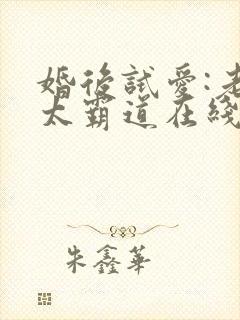 婚後試愛:老
太霸道在綫
朱鑫華